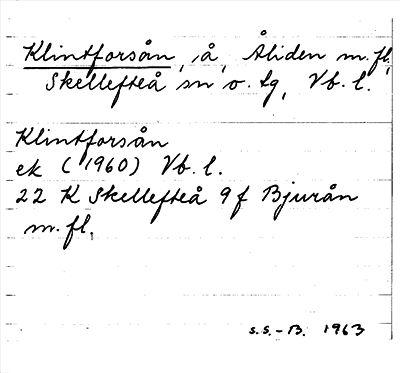 Klintforsån, å, Åliden m.fl,
Skellefteå sn o. tg, Vb. l.
Klintforsån
ek (1960) Vb. l.
22 K Skellefteå 9f Bjurån
m. fl.
S.S.-B. 1963